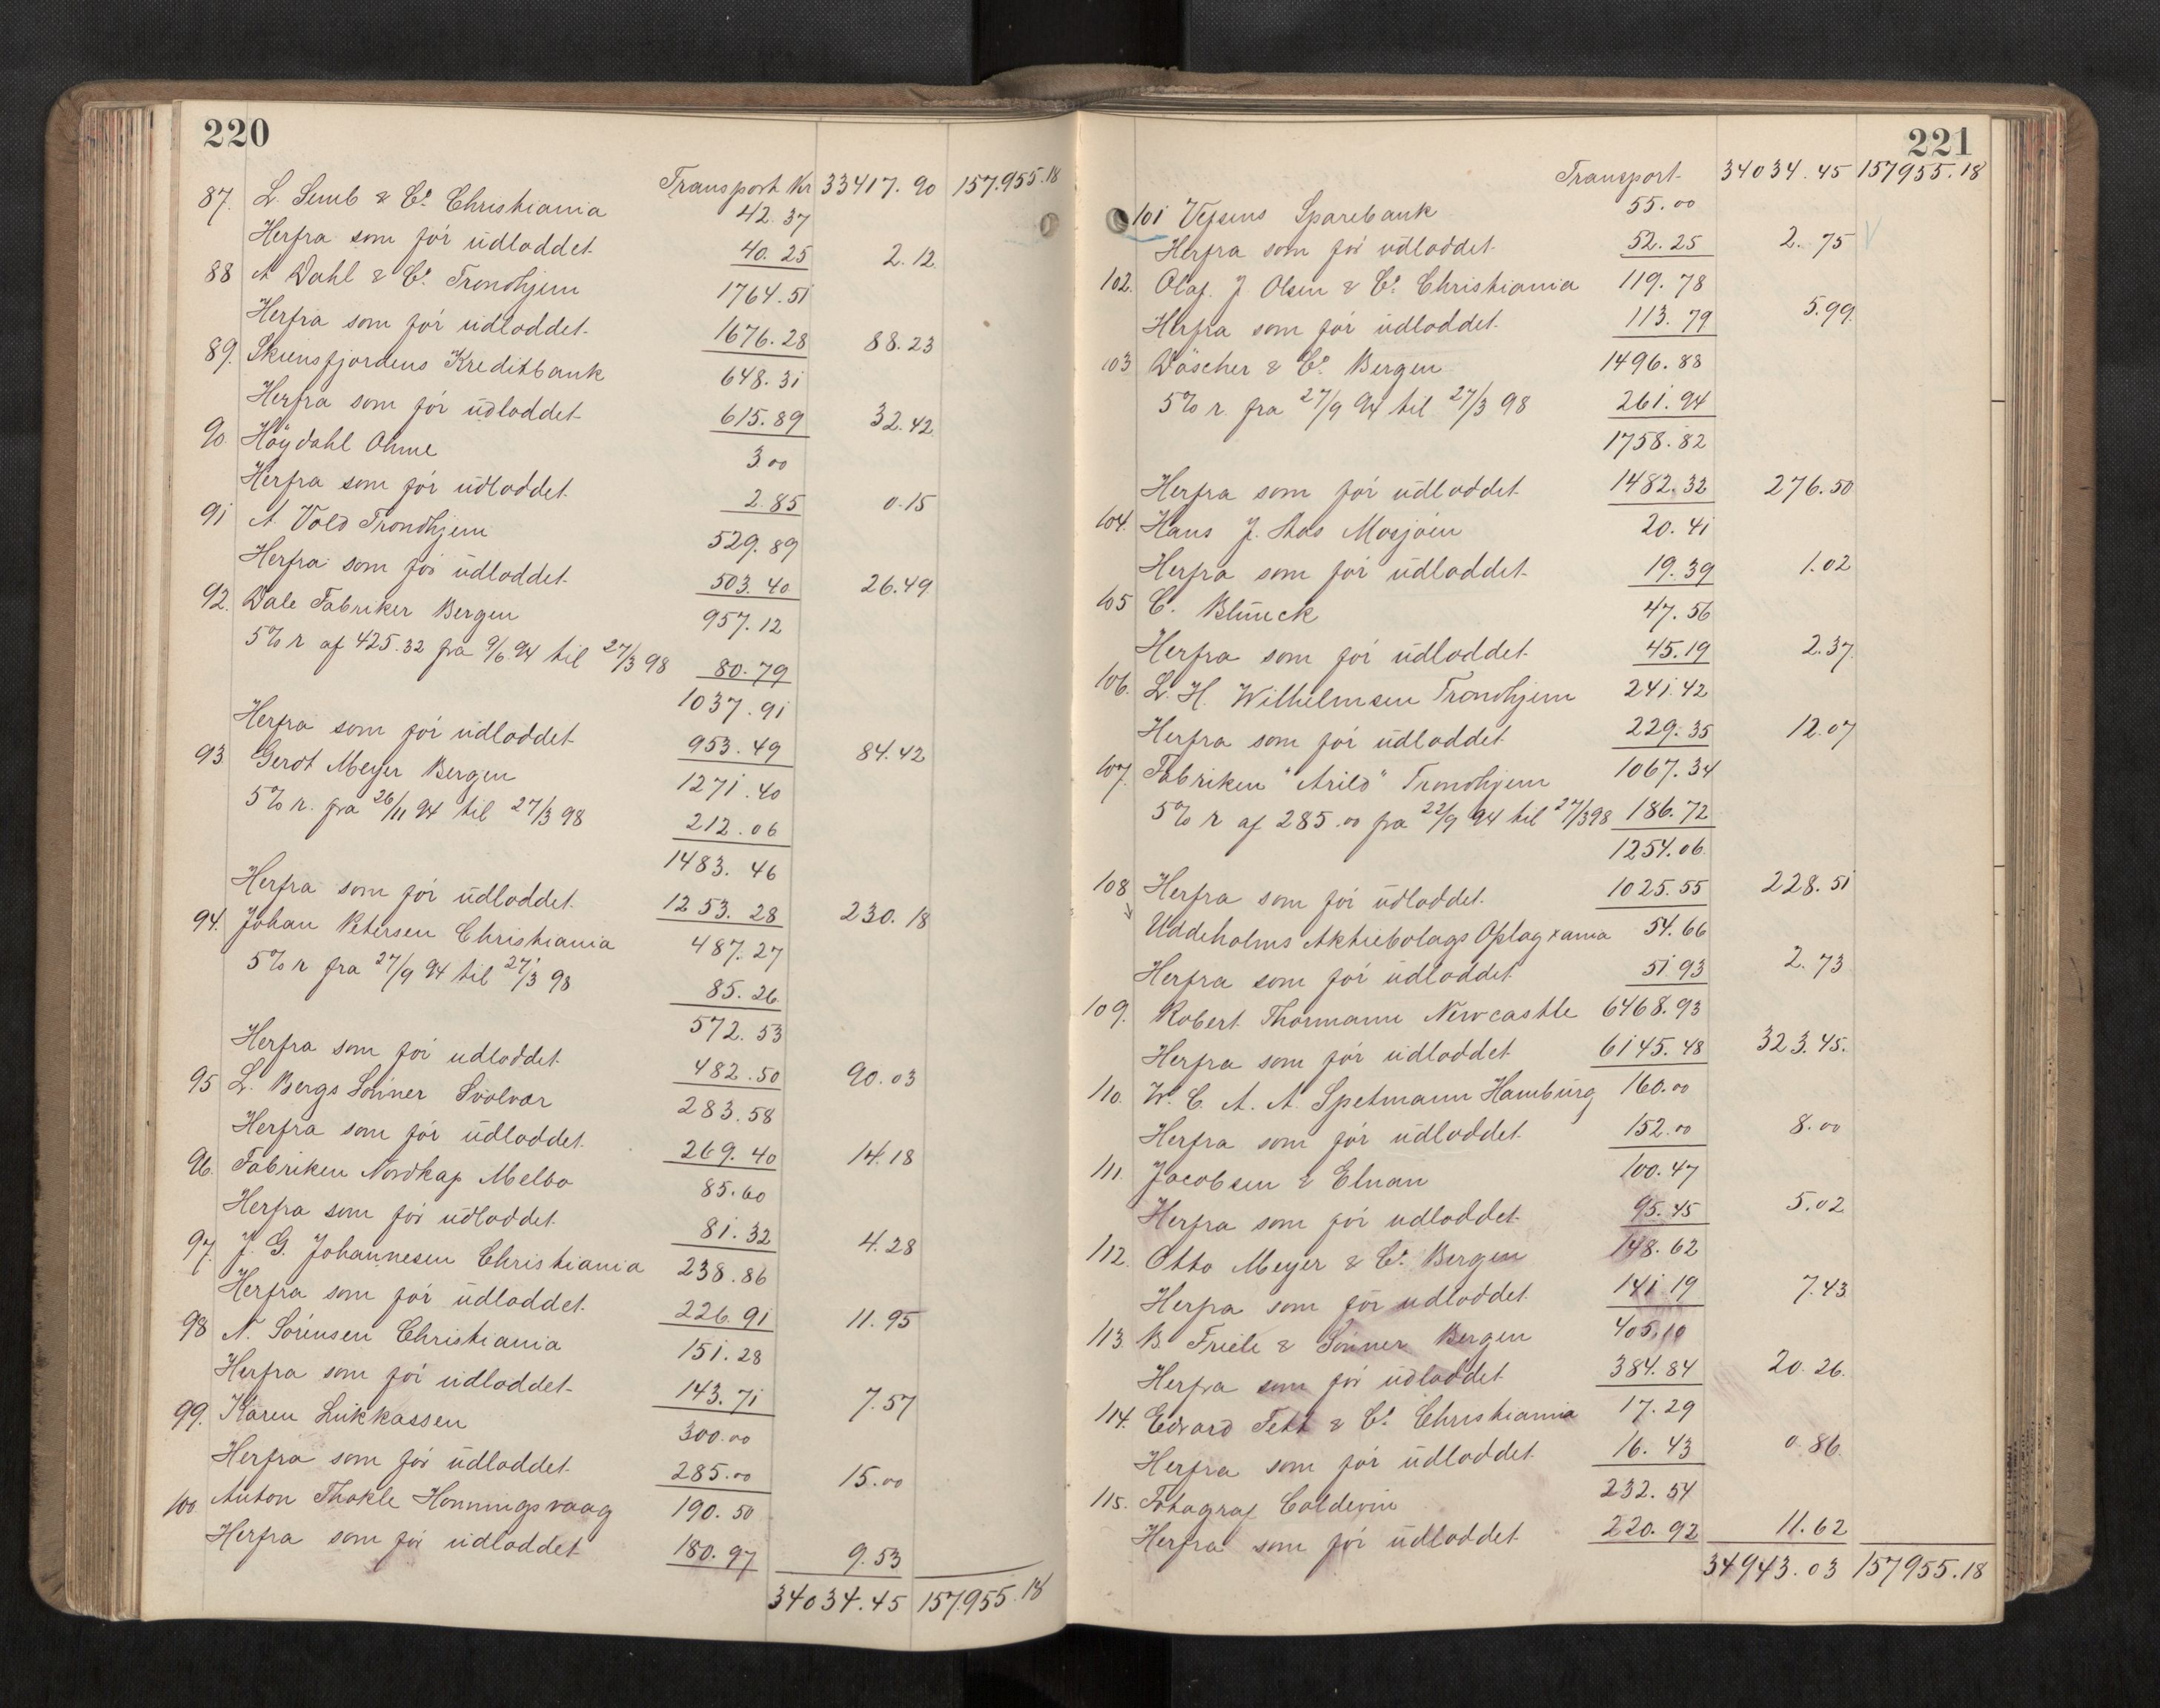 220
Transport Kr 33417.90 157.955.18
87. L. Semb & Co. Christiania 42.37
Herfra som før udloddet 40.25 2.12
88 A Dahl & Co. Trondhjem 1764.51
Herfra som før udloddet 1676.28 88.23
89. Skiensfjordens Kreditbank 648.31
Herfra som før udloddet 615.89 32.42
90. Höydahl Ohme 3.00
Herfra som før udloddet 2.85 0.15
91 A. Vold Trondhjem 529.89
Herfra som før udloddet 503.40 26.49
92. Dale Fabriker Bergen 957.12
5% r af 425.32 fra 9/6 94 til 27/3 98 80.79
1037.91
Herfra som før udloddet 953.49 84.42
93 Gerdt Meyer Bergen 1271.40
5% r. fra 26/11 94 til 27/3 98 212.06
1483.46
Herfra som før udloddet 1253.28 230.18
94. Johan Petersen Christiania 487.27
5% r fra 27/9 94 til 27/3 98 85.26
572.53
Herfra som før udloddet 482.50 90.03
95 L. Bergs Sönner Svolvær 283.58
Herfra som før udloddet 269.40 14.18
96. Fabriken Nordkap Melbo 85.60
Herfra som før udloddet 81.32 4.28
97. J. G. Johannesen Christiania 238.86
Herfra som før udloddet 226.91 11.95
98 N. Sörensen Christiania 151.28
Herfra som før udloddet 143.71 7.57
99. Karen Lukkassen 300.00
Herfra som før udloddet 285.00 15.00
100 Anton Thokle Honningsvaag 190.50
Herfra som før udloddet 180.97 9.53
34034.45 157.955.18
221
Transport 34034.45 157955.18
101 Vefsens Sparebank 55.00
Herfra som før udloddet 52.25 2.75
102. Olaf. J. Olsen & Co. Christiania 119.78
Herfra som før udloddet 113.79 5.99
103 Döscher & Co. Bergen 1496.88
5% r. fra 27/9 94 til 27/3 98 261.94
1758.82
Herfra som før udloddet 1482.32 276.50
104. Hans J. Aas Mosjøen 20.41
Herfra som før udloddet 19.39 1.02
105 C. Blunck 47.56
Herfra som før udloddet 45.19 2.37
106. L. H. Wilhelmsen Trondhjem 241.42
Herfra som før udloddet 229.35 12.07
107. Fabriken "Arild" Trondhjem 1067.34
5% r af 285.00 fra 22/9 94 til 27/3 98 186.72
1254.06
108 Herfra som før udloddet 1025.55 228.51
Uddeholms Aktiebolags Oplag xania 54.66
Herfra som før udloddet 51.93 2.73
109. Robert Thormann Newcastle 6468.93
Herfra som før udloddet 6145.48 323.45.
110. W. C. A. A. Spetmann Hamburg 160.00
Herfra som før udloddet 152.00 8.00
111. Jacobsen & Elnan 100.47
Herfra som før udloddet 95.45 5.02
112. Otto Meyer & Co. Bergen 148.62
Herfra som før udloddet 141.19 7.43
113. B. Friele & Sönner Bergen 405.10
Herfra som før udloddet 384.84 20.26.
114. Edvard Fett & Co. Christiania 17.29
Herfra som før udloddet 16.43 0.86
115. Fotograf Coldevin 232.54
Herfra som før udloddet 220.92 11.62
34943.03 157955.18